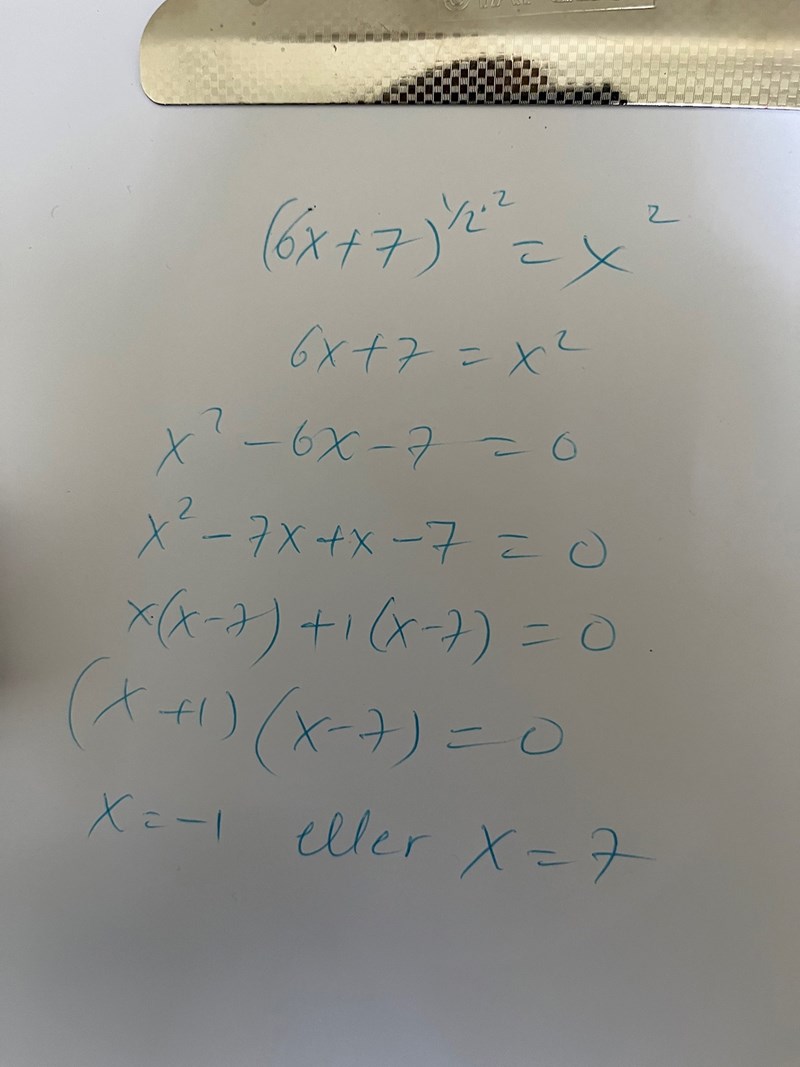 (6x+7)^{1/2·2} = x^2
6x+7 = x^2
x^2 - 6x - 7 = 0
x^2 - 7x + x - 7 = 0
x(x-7) + 1(x-7) = 0
(x+1)(x-7) = 0
x = -1 eller x = 7